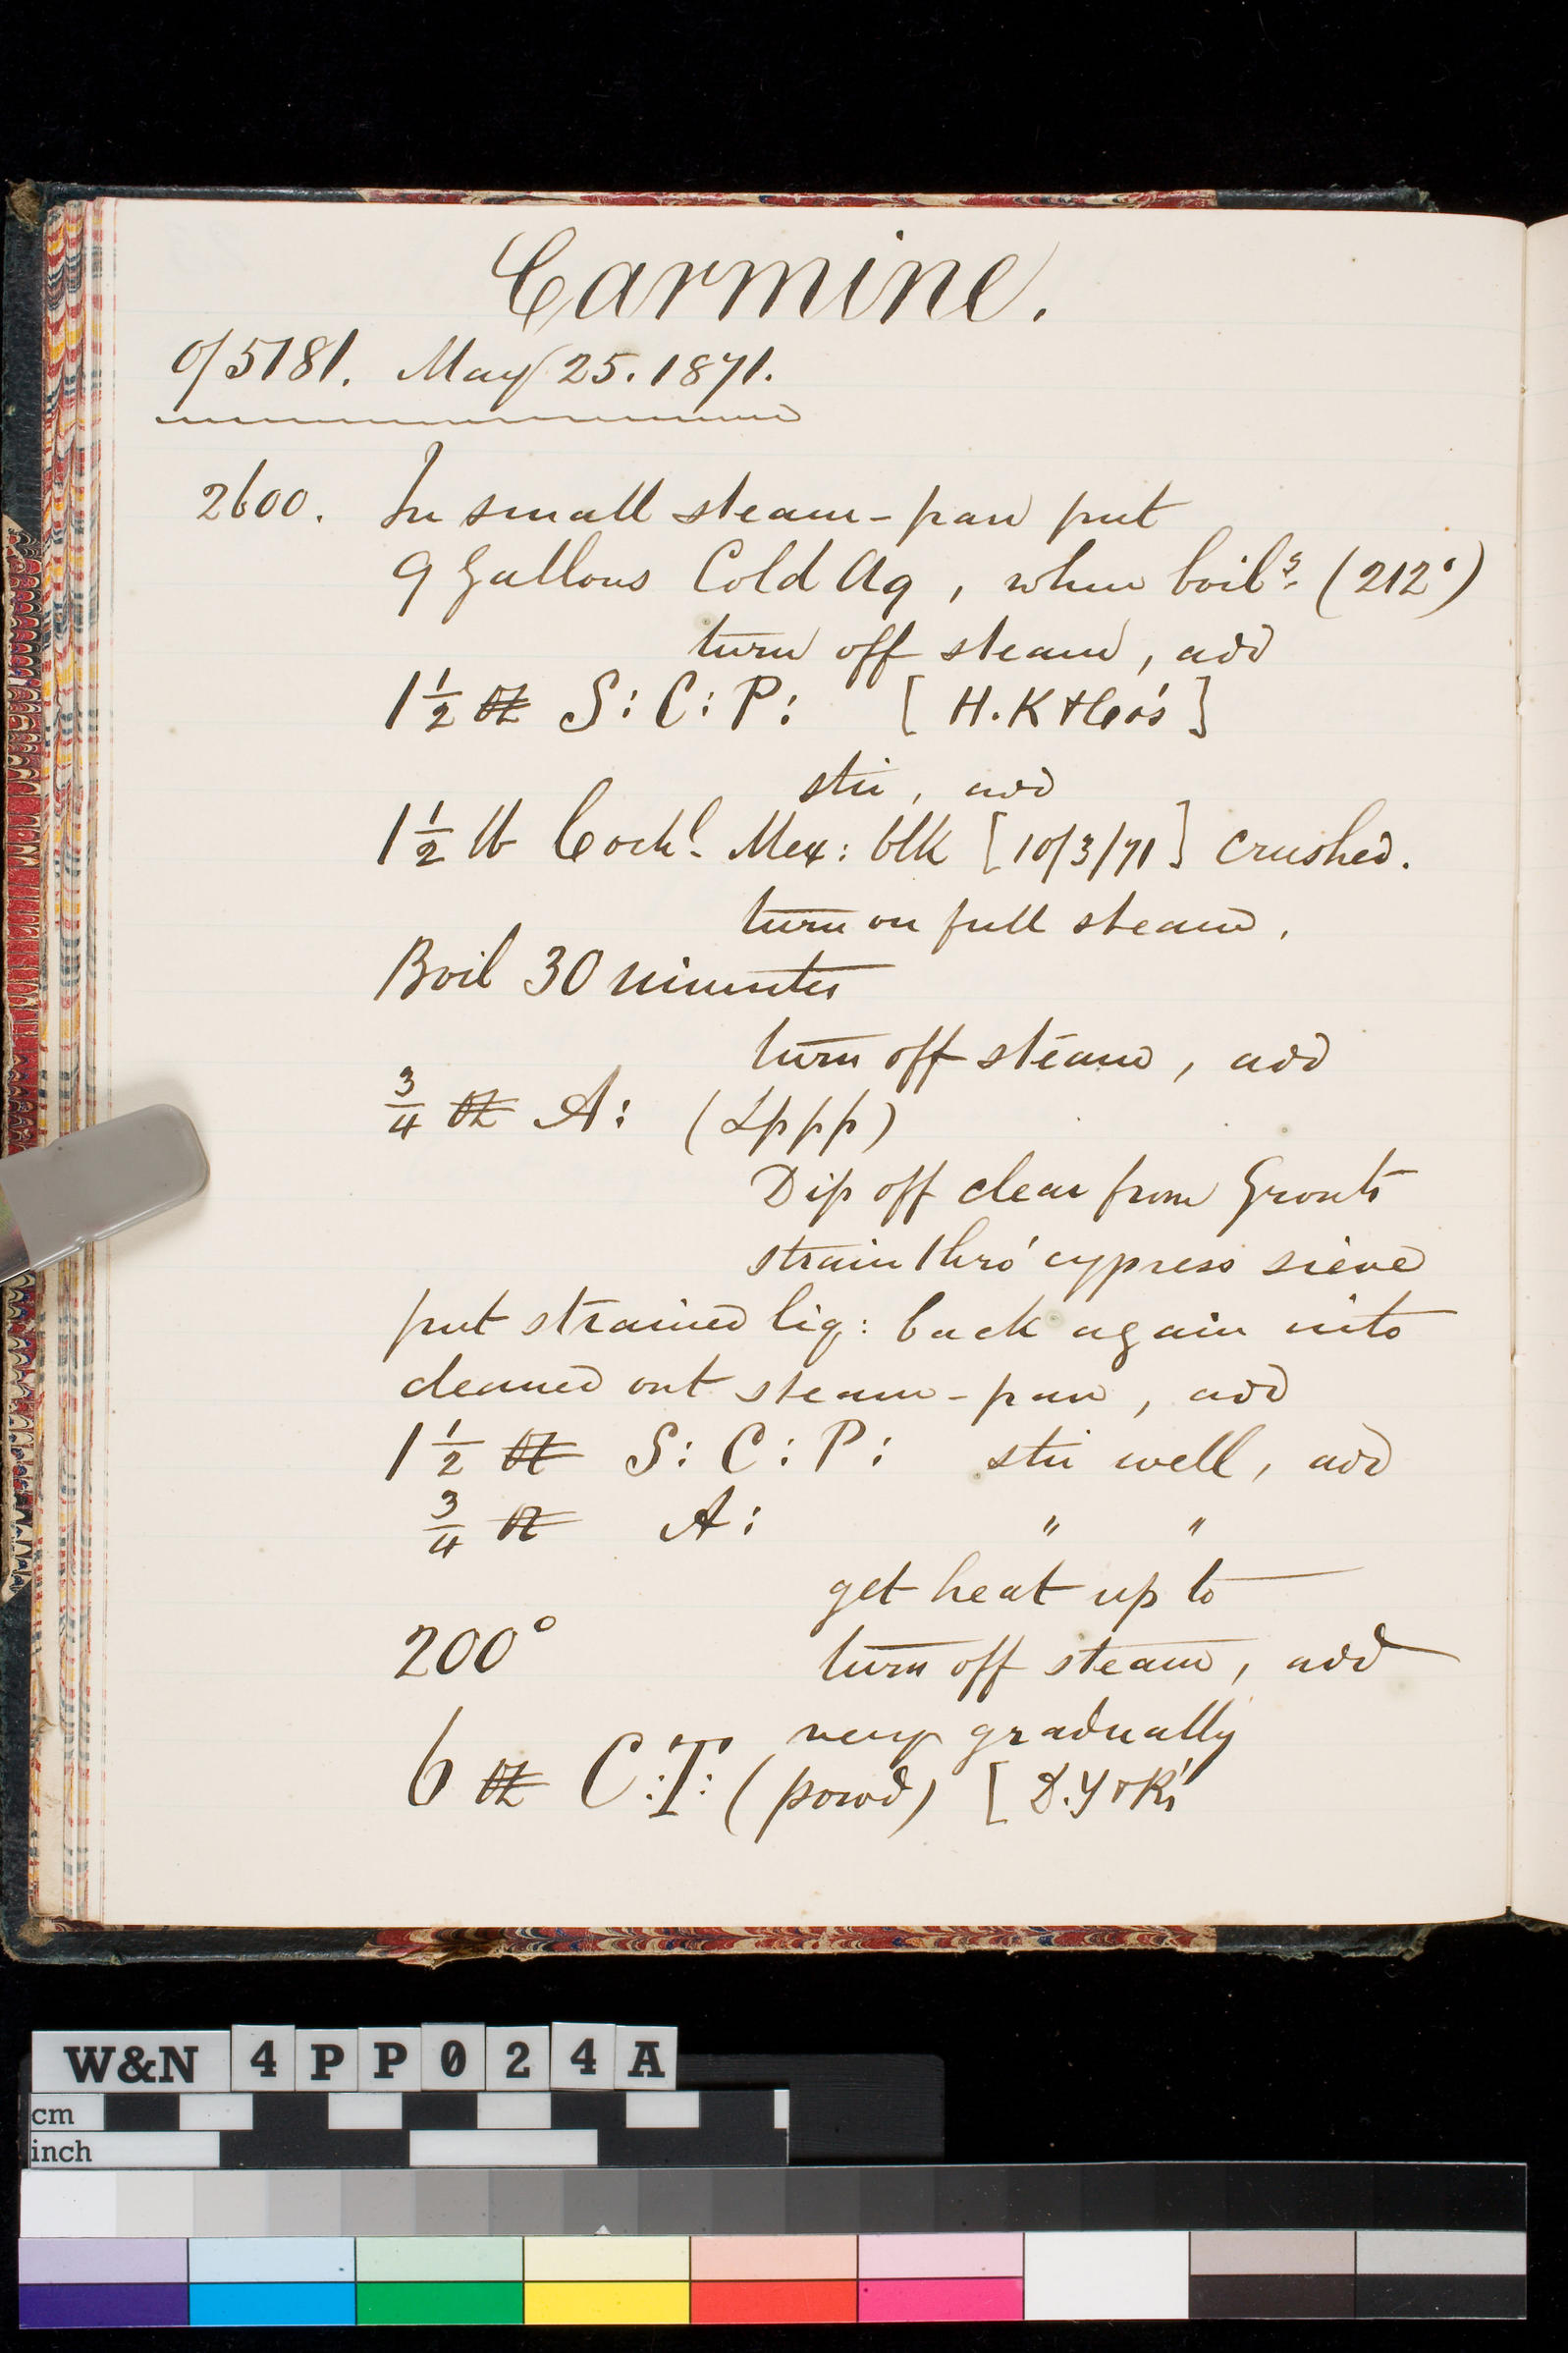 Carmine.
o/5181. May 25. 1871.
2600. In small steam-pan put
9 Gallons Cold Aq, when boilg. (212°)
turn off steam, add
1 1/2 oz S: C: P: [ H.K & Co's ]
stir, add
1 1/2 lb Cochl. Mex: blk [10/3/71] crushed.
turn on full steam.
Boil 30 minutes
turn off steam, add
3/4 oz A: (Lppp)
Dip off clear from Grouts
strain thro' cypress sieve
put strained liq: back again into
cleaned out steam-pan, add
1 1/2 oz S: C: P: stir well, add
3/4 oz A: " "
get heat up to
200° turn off steam, add
very gradually
6 oz C:T: (powd) [ D.Y & R's
W&N 4PP024A
cm
inch